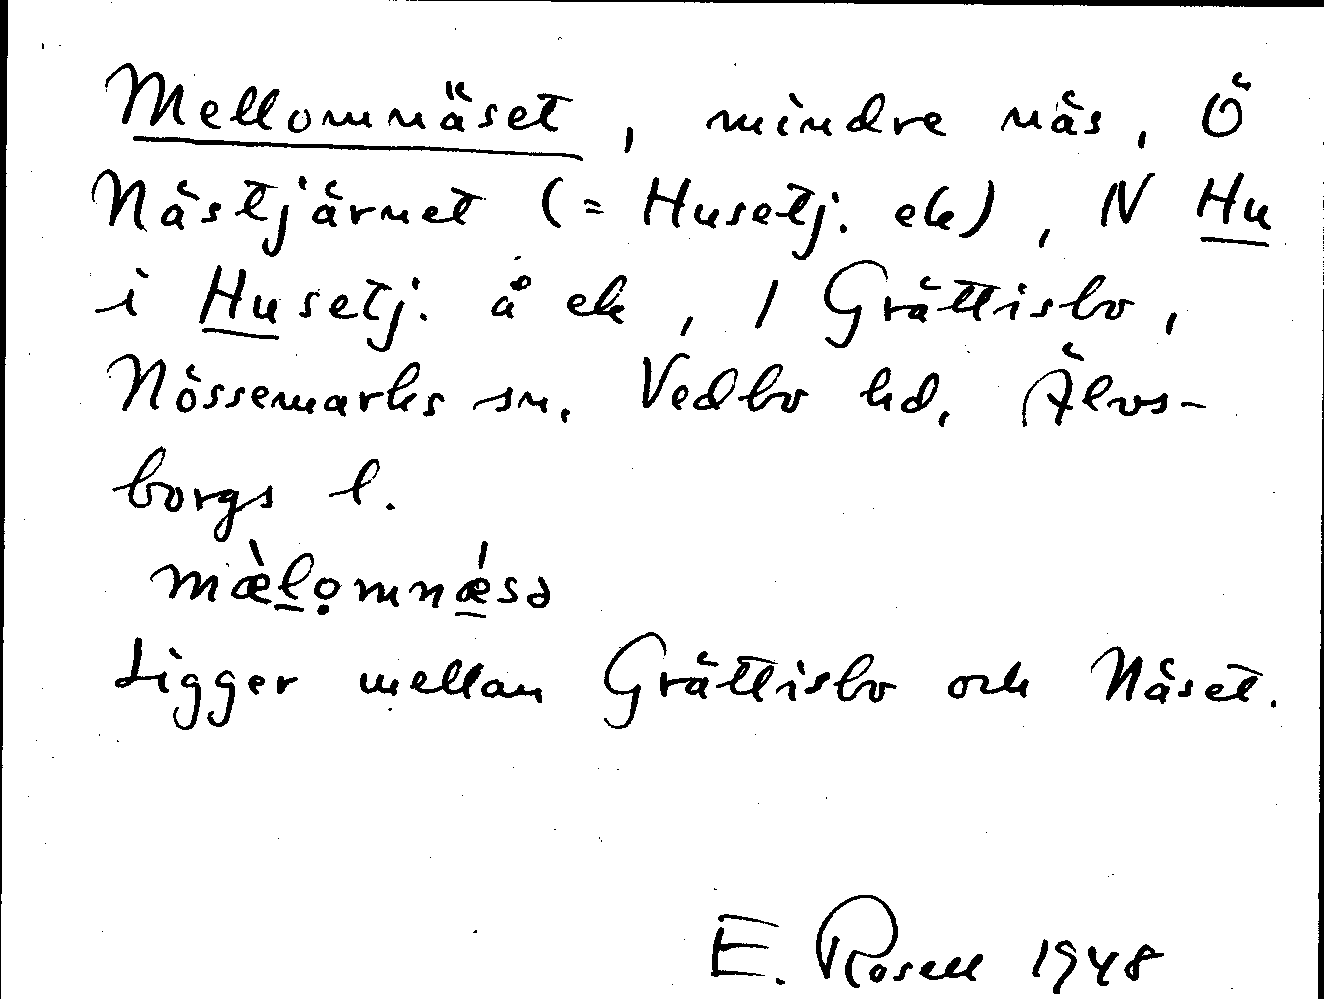 Mellomnäset, mindre näs, Ö
Nästjärnet (= Husetj. ek), N Hu
i Husetj. å ek, 1 Grättisbo,
Nössemarks sn. Vedbo hd. Älvs-
borgs l.
mæ̀lo̤mnǽsə
Ligger mellan Grättisbo och Näset.
E. Rosell 1948